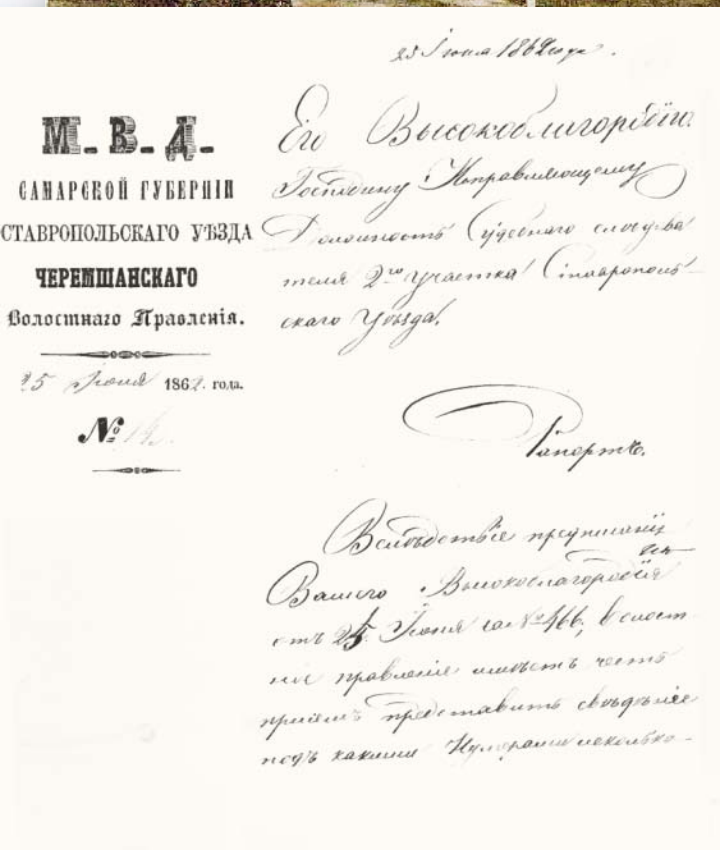 25 Іюня 1862 года.
М. В. Д.
САМАРСКОЙ ГУБЕРНІИ
СТАВРОПОЛЬСКАГО УѢЗДА
ЧЕРЕМШАНСКАГО
Волостнаго Правленія.
25 Іюня 1862. года.
№
Его Высокоблагородію.
Господину Исправляющему
Должность Судебнаго слѣдова
теля 2го участка Ставрополь-
скаго Уѣзда.
Рапортъ.
Вслѣдствіе предписанія
Вашего Высокоблагородія
отъ 25 Іюня за № 466, волост
ное правленіе имѣетъ честь
при семъ представить свѣдѣніе
подъ какими Нумерами несколько-